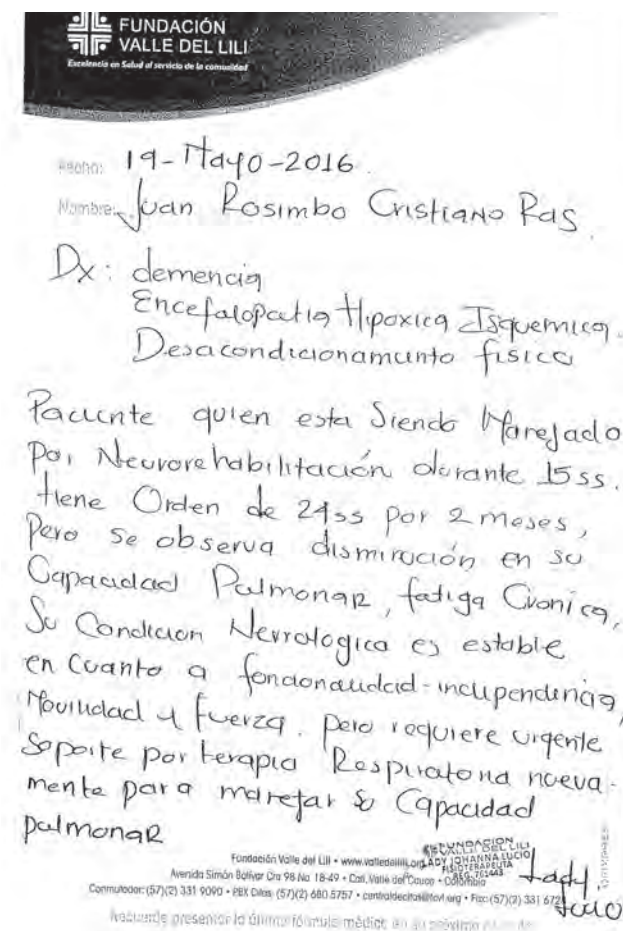 FUNDACIÓN
VALLE DEL LILI
Excelencia en Salud al servicio de la comunidad
Fecha: 19-Mayo-2016.
Nombre: Juan Rosimbo Cristiano Ras.
Dx: demencia
Encefalopatia Hipoxica Isquemica.
Desacondicionamiento fisico
Paciente quien esta Siendo Manejado
Por Neurorehabilitación durante 15 ss.
tiene Orden de 24ss por 2 meses,
Pero se observa dismirución en su
Capacidad Pulmonar, fatiga Cronica,
Su Condicion Nevrologica es estable
en Cuanto a foncionalidad-independencia,
Movilidad y fuerza. pero requiere urgente
Soporte por terapia Respiratoria nueva-
mente para manejar su Capacidad
pulmonar
FUNDACION
VALLE DEL LILI
LADY JOHANNA LUCIO
FISIOTERAPEUTA
REG. 761443
Lady Lucio
Fundación Valle del Lili • www.valledellili.org
Avenida Simón Bolívar Cra 98 No. 18-49 • Cali, Valle del Cauca • Colombia
Conmutador: (57)(2) 331 9090 • PBX Citas: (57)(2) 680 5757 • centraldecitas@fcvl.org • Fax: (57)(2) 331 672
Recuerde presentar la última fórmula médica en su próximo